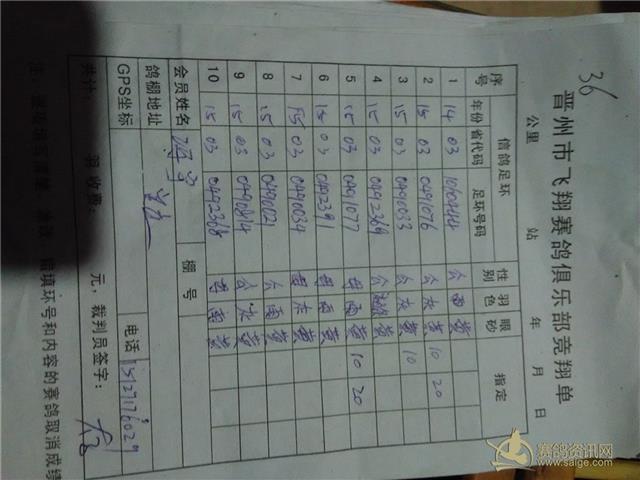 36
晋州市飞翔赛鸽俱乐部竞翔单
公里 站 年 月 日
序号 信鸽足环 性别 羽色 眼砂 指定
年份 省代码 足环号码
1 14 03 公 雨 黄
2 15 03 0491076 公 灰 黄 10 20
3 15 03 0490033 公 灰 黄 10
4 15 03 0492369 公 黄
5 15 03 0491077 母 雨 黄 10 20
6 15 03 0492391 母 雨 黄
7 15 03 0490034 母 灰 黄
8 15 03 0490021 公 雨 黄
9 15 03 0490814 公 灰 黄
10 15 03 0492368 母 雨 黄
会员姓名 棚号
鸽棚地址 电话
GPS坐标
共计: 羽 收费: 元, 裁判员签字:
注: 错填环号和内容的赛鸽取消成绩
赛鸽资讯网
www.saige.com